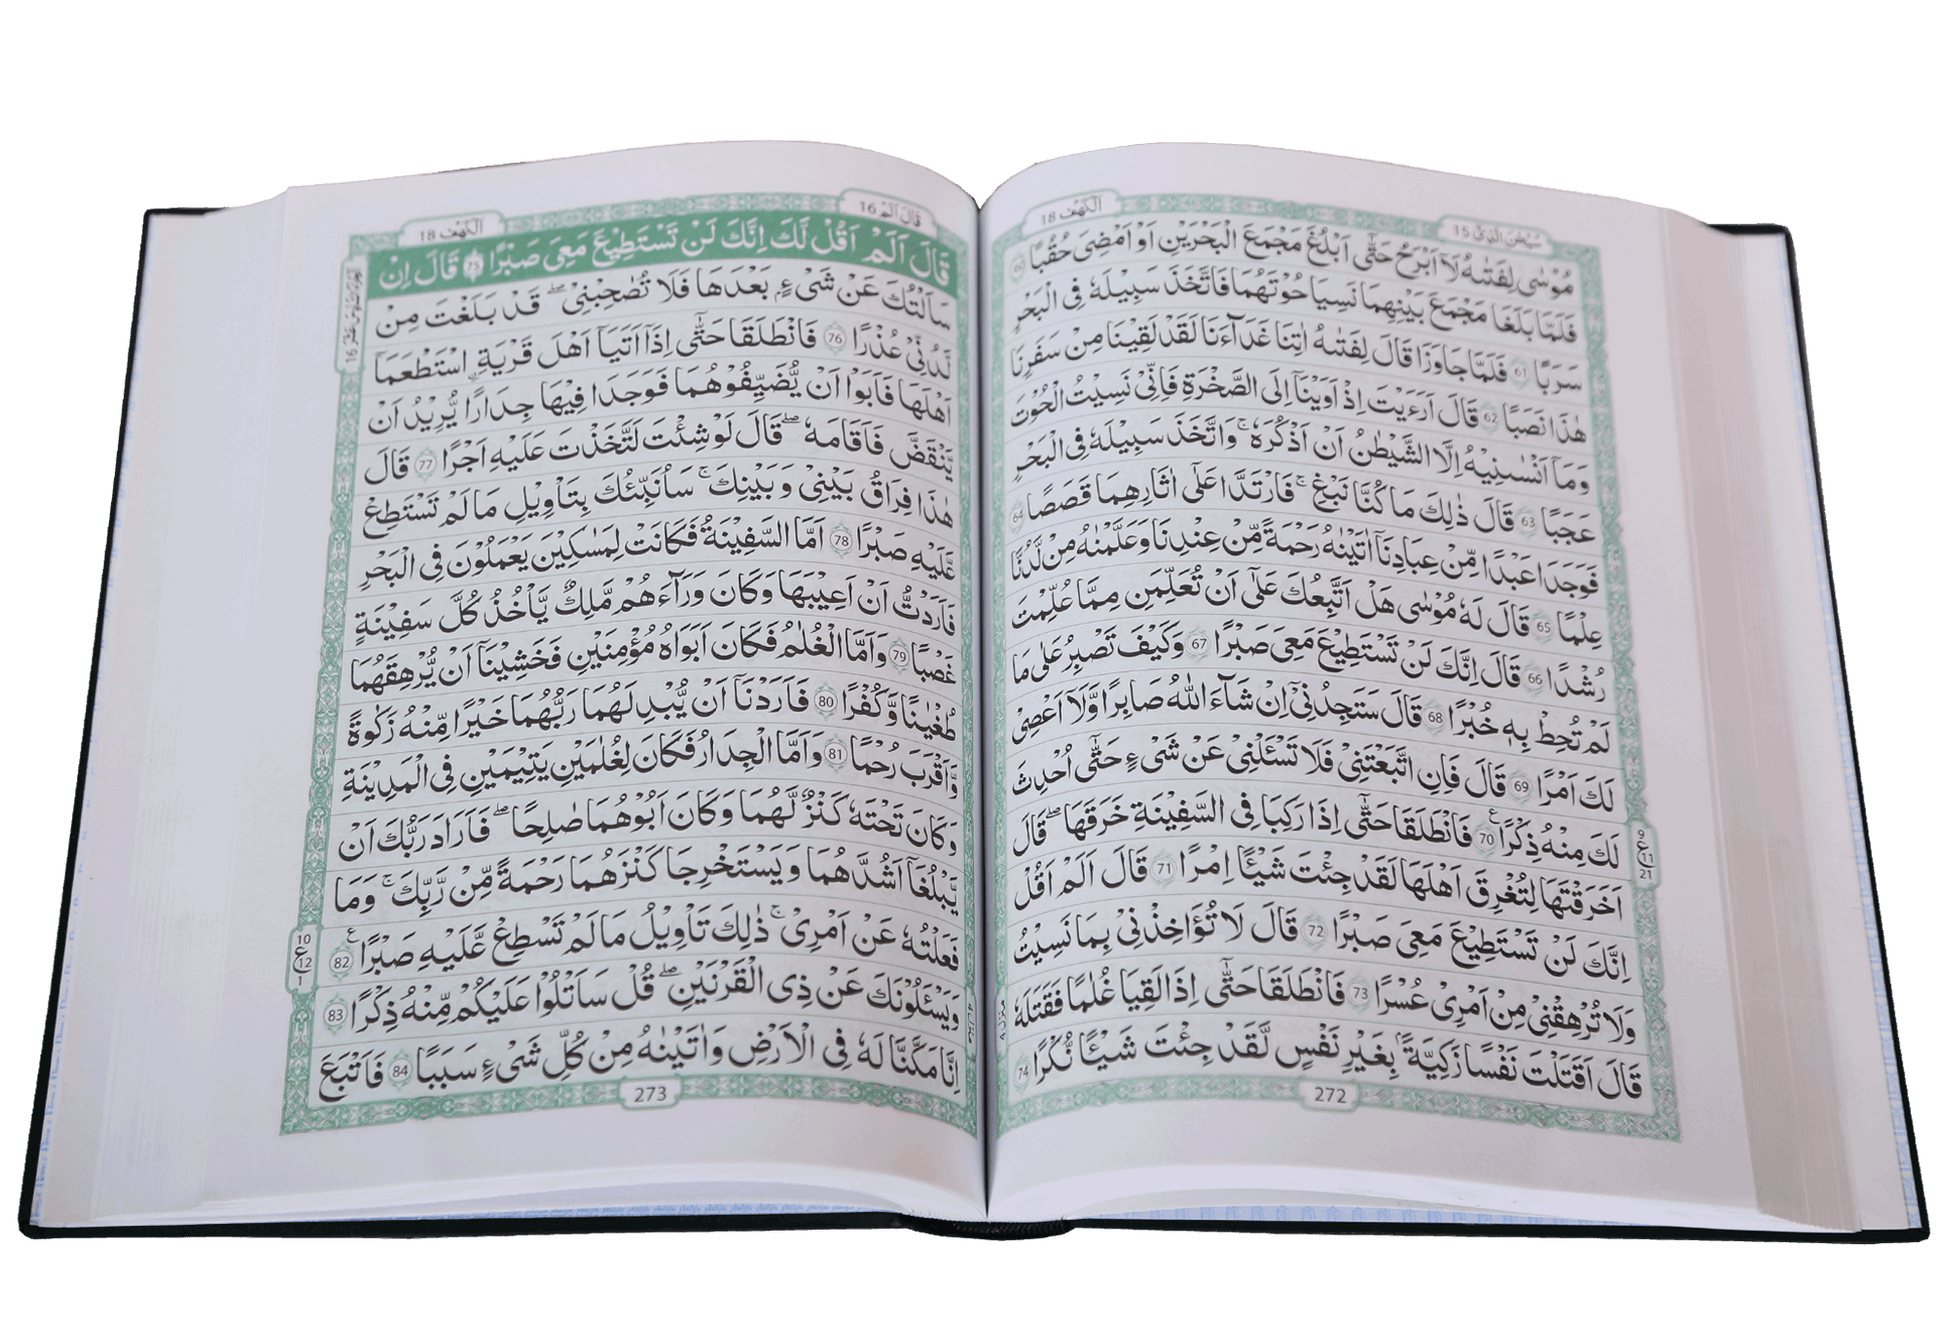 سبحٰن الذی 15
الکهف 18
مُوْسٰى لِفَتٰىهُ لَآ اَبْرَحُ حَتّٰٓى اَبْلُغَ مَجْمَعَ الْبَحْرَيْنِ اَوْ اَمْضِىَ حُقُبًا 60
فَلَمَّا بَلَغَا مَجْمَعَ بَيْنِهِمَا نَسِيَا حُوْتَهُمَا فَاتَّخَذَ سَبِيْلَهٗ فِى الْبَحْرِ
سَرَبًا 61 فَلَمَّا جَاوَزَا قَالَ لِفَتٰىهُ اٰتِنَا غَدَآءَنَا لَقَدْ لَقِيْنَا مِنْ سَفَرِنَا
هٰذَا نَصَبًا 62 قَالَ اَرَءَيْتَ اِذْ اَوَيْنَآ اِلَى الصَّخْرَةِ فَاِنِّىْ نَسِيْتُ الْحُوْتَ
وَمَآ اَنْسٰىنِيْهُ اِلَّا الشَّيْطٰنُ اَنْ اَذْكُرَهٗ ۚ وَاتَّخَذَ سَبِيْلَهٗ فِى الْبَحْرِ
عَجَبًا 63 قَالَ ذٰلِكَ مَا كُنَّا نَبْغِ ۚ فَارْتَدَّا عَلٰٓى اٰثَارِهِمَا قَصَصًا 64
فَوَجَدَا عَبْدًا مِّنْ عِبَادِنَآ اٰتَيْنٰهُ رَحْمَةً مِّنْ عِنْدِنَا وَعَلَّمْنٰهُ مِنْ لَّدُنَّا
عِلْمًا 65 قَالَ لَهٗ مُوْسٰى هَلْ اَتَّبِعُكَ عَلٰٓى اَنْ تُعَلِّمَنِ مِمَّا عُلِّمْتَ
رُشْدًا 66 قَالَ اِنَّكَ لَنْ تَسْتَطِيْعَ مَعِىَ صَبْرًا 67 وَكَيْفَ تَصْبِرُ عَلٰى مَا
لَمْ تُحِطْ بِهٖ خُبْرًا 68 قَالَ سَتَجِدُنِىْٓ اِنْ شَآءَ اللّٰهُ صَابِرًا وَّلَآ اَعْصِىْ
لَكَ اَمْرًا 69 قَالَ فَاِنِ اتَّبَعْتَنِىْ فَلَا تَسْـَٔلْنِىْ عَنْ شَىْءٍ حَتّٰٓى اُحْدِثَ
لَكَ مِنْهُ ذِكْرًا 70 ع فَانْطَلَقَا حَتّٰٓى اِذَا رَكِبَا فِى السَّفِيْنَةِ خَرَقَهَا ۖ قَالَ
اَخَرَقْتَهَا لِتُغْرِقَ اَهْلَهَا لَقَدْ جِئْتَ شَيْـًٔا اِمْرًا 71 قَالَ اَلَمْ اَقُلْ
اِنَّكَ لَنْ تَسْتَطِيْعَ مَعِىَ صَبْرًا 72 قَالَ لَا تُؤَاخِذْنِىْ بِمَا نَسِيْتُ
وَلَا تُرْهِقْنِىْ مِنْ اَمْرِىْ عُسْرًا 73 فَانْطَلَقَا حَتّٰٓى اِذَا لَقِيَا غُلٰمًا فَقَتَلَهٗ
قَالَ اَقَتَلْتَ نَفْسًا زَكِيَّةً بِغَيْرِ نَفْسٍ لَّقَدْ جِئْتَ شَيْـًٔا نُّكْرًا 74
9
ع 11
21
منزل 4
272
قال الم 16
الکهف 18
قَالَ اَلَمْ اَقُلْ لَّكَ اِنَّكَ لَنْ تَسْتَطِيْعَ مَعِىَ صَبْرًا 75 قَالَ اِنْ
سَاَلْتُكَ عَنْ شَىْءٍ بَعْدَهَا فَلَا تُصٰحِبْنِىْ ۖ قَدْ بَلَغْتَ مِنْ
لَّدُنِّىْ عُذْرًا 76 فَانْطَلَقَا حَتّٰٓى اِذَآ اَتَيَآ اَهْلَ قَرْيَةِ اسْتَطْعَمَآ
اَهْلَهَا فَاَبَوْا اَنْ يُّضَيِّفُوْهُمَا فَوَجَدَا فِيْهَا جِدَارًا يُّرِيْدُ اَنْ
يَّنْقَضَّ فَاَقَامَهٗ ۖ قَالَ لَوْ شِئْتَ لَتَّخَذْتَ عَلَيْهِ اَجْرًا 77 قَالَ
هٰذَا فِرَاقُ بَيْنِىْ وَبَيْنِكَ ۚ سَاُنَبِّئُكَ بِتَاْوِيْلِ مَا لَمْ تَسْتَطِعْ
عَّلَيْهِ صَبْرًا 78 اَمَّا السَّفِيْنَةُ فَكَانَتْ لِمَسٰكِيْنَ يَعْمَلُوْنَ فِى الْبَحْرِ
فَاَرَدْتُّ اَنْ اَعِيْبَهَا وَكَانَ وَرَآءَهُمْ مَّلِكٌ يَّاْخُذُ كُلَّ سَفِيْنَةٍ
غَصْبًا 79 وَاَمَّا الْغُلٰمُ فَكَانَ اَبَوٰهُ مُؤْمِنَيْنِ فَخَشِيْنَآ اَنْ يُّرْهِقَهُمَا
طُغْيٰنًا وَّكُفْرًا 80 فَاَرَدْنَآ اَنْ يُّبْدِلَهُمَا رَبُّهُمَا خَيْرًا مِّنْهُ زَكٰوةً
وَّاَقْرَبَ رُحْمًا 81 وَاَمَّا الْجِدَارُ فَكَانَ لِغُلٰمَيْنِ يَتِيْمَيْنِ فِى الْمَدِيْنَةِ
وَكَانَ تَحْتَهٗ كَنْزٌ لَّهُمَا وَكَانَ اَبُوْهُمَا صٰلِحًا ۖ فَاَرَادَ رَبُّكَ اَنْ
يَّبْلُغَآ اَشُدَّهُمَا وَيَسْتَخْرِجَا كَنْزَهُمَا رَحْمَةً مِّنْ رَّبِّكَ ۚ وَمَا
فَعَلْتُهٗ عَنْ اَمْرِىْ ۚ ذٰلِكَ تَاْوِيْلُ مَا لَمْ تَسْطِعْ عَّلَيْهِ صَبْرًا 82 ع
وَيَسْـَٔلُوْنَكَ عَنْ ذِى الْقَرْنَيْنِ ۖ قُلْ سَاَتْلُوْا عَلَيْكُمْ مِّنْهُ ذِكْرًا 83
اِنَّا مَكَّنَّا لَهٗ فِى الْاَرْضِ وَاٰتَيْنٰهُ مِنْ كُلِّ شَىْءٍ سَبَبًا 84 فَاَتْبَعَ
10
ع 12
1
منزل 4
273